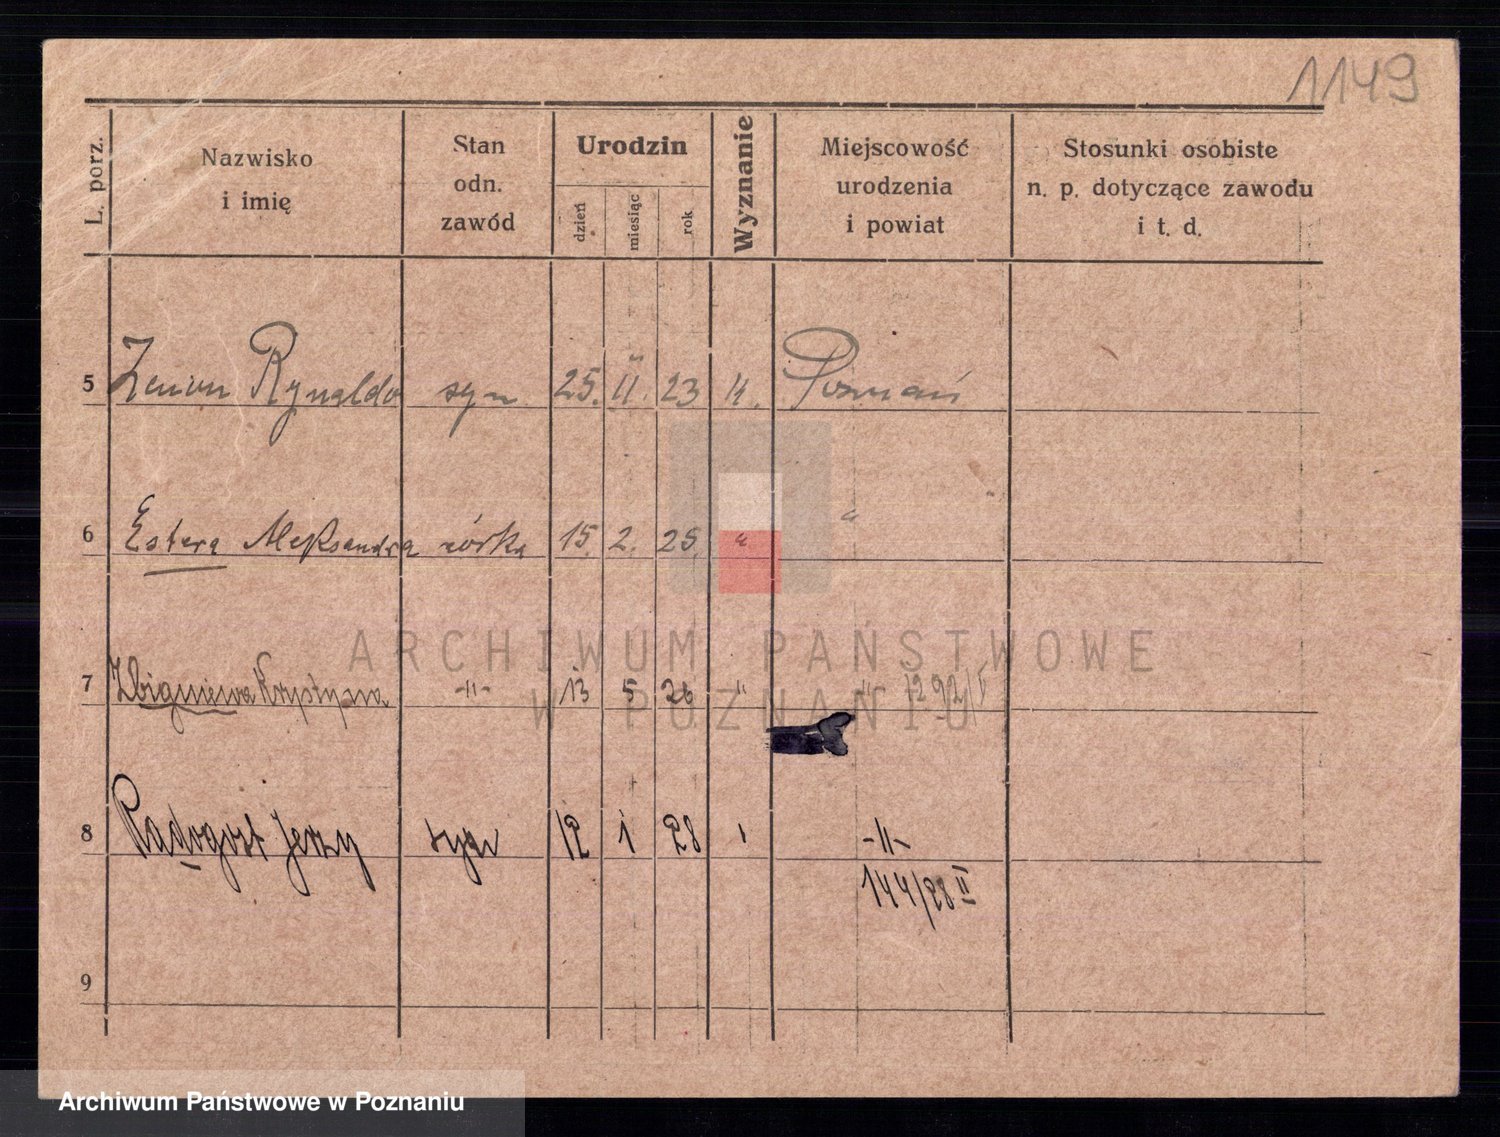 1149
L. porz.
Nazwisko
i imię
Stan
odn.
zawód
Urodzin
dzień
miesiąc
rok
Wyznanie
Miejscowość
urodzenia
i powiat
Stosunki osobiste
n. p. dotyczące zawodu
i t. d.
5 Zenon Rynaldo syn 25. 11. 23 Poznań
6 Estera Aleksandra córka 15. 2. 25. " "
ARCHIWUM PAŃSTWOWE
7 Zbigniewa Krystyna -"- 13 5 26 " " 1292/
W POZNANIU
8 Radogost Jerzy syn 12 1 28 -"-
144/28 II
9
Archiwum Państwowe w Poznaniu